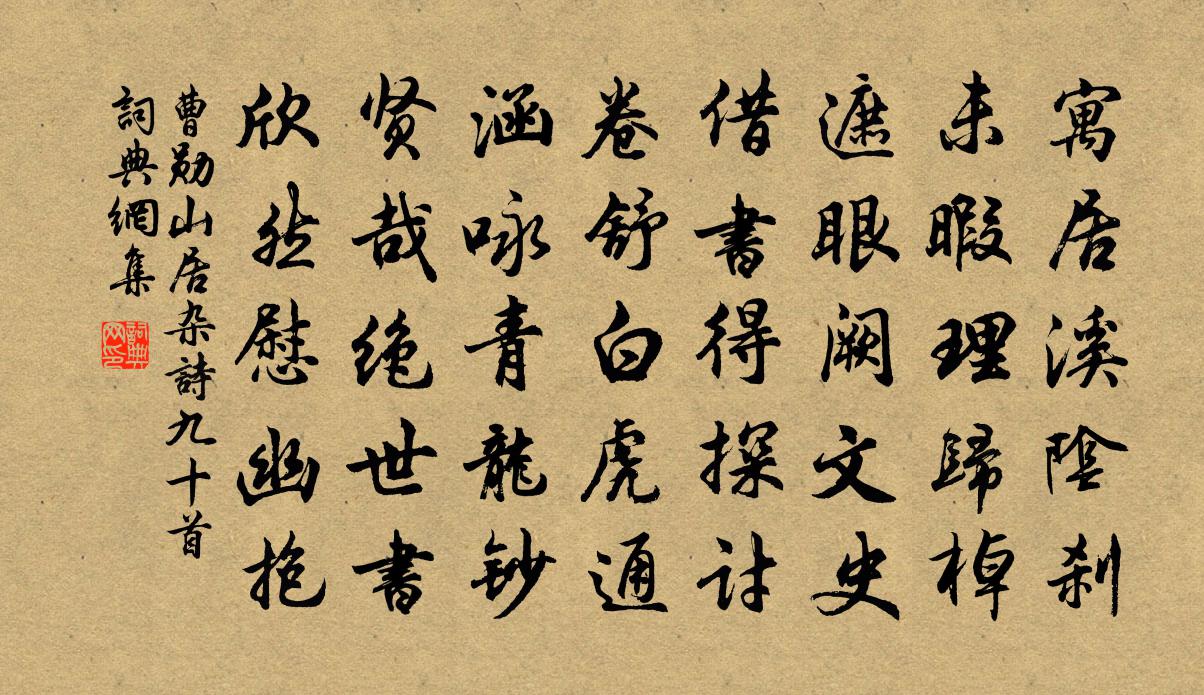 寓居溪陰刹
未暇理歸棹
遮眼闕文史
借書得探討
卷舒白虎通
涵咏青龍鈔
贤哉绝世書
欣然慰幽抱
曹勛山居杂詩九十首
詞典網集
詞典网印